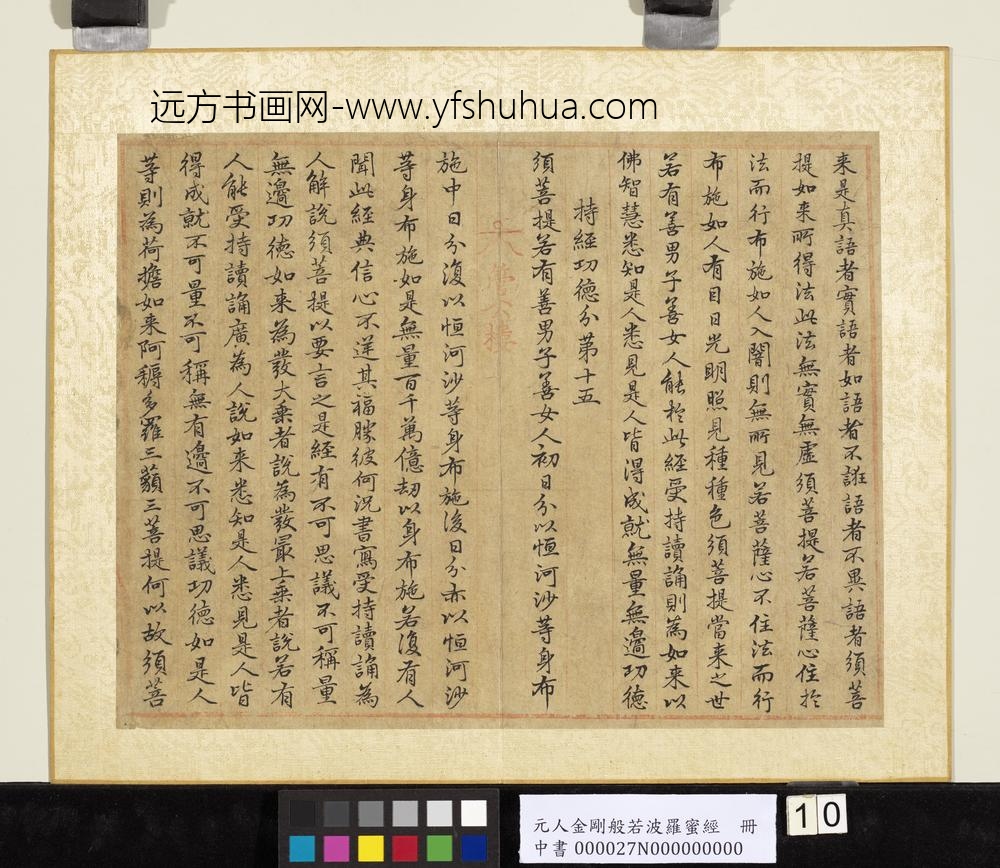 远方书画网-www.yfshuhua.com
来是真語者實語者如語者不誑語者不異語者須菩
提如来所得法此法無實無虛須菩提若菩薩心住於
法而行布施如人入闇則無所見若菩薩心不住法而行
布施如人有目日光明照見種種色須菩提當来之世
若有善男子善女人能於此經受持讀誦則為如来以
佛智慧悉知是人悉見是人皆得成就無量無邊功德
持經功德分第十五
須菩提若有善男子善女人初日分以恒河沙等身布
施中日分復以恒河沙等身布施後日分亦以恒河沙
等身布施如是無量百千萬億劫以身布施若復有人
聞此經典信心不逆其福勝彼何況書寫受持讀誦為
人解說須菩提以要言之是經有不可思議不可稱量
無邊功德如来為發大乘者說為發最上乘者說若有
人能受持讀誦廣為人說如来悉知是人悉見是人皆
得成就不可量不可稱無有邊不可思議功德如是人
等則為荷擔如来阿耨多羅三藐三菩提何以故須菩
元人金剛般若波羅蜜經 冊
中書 000027N000000000
10